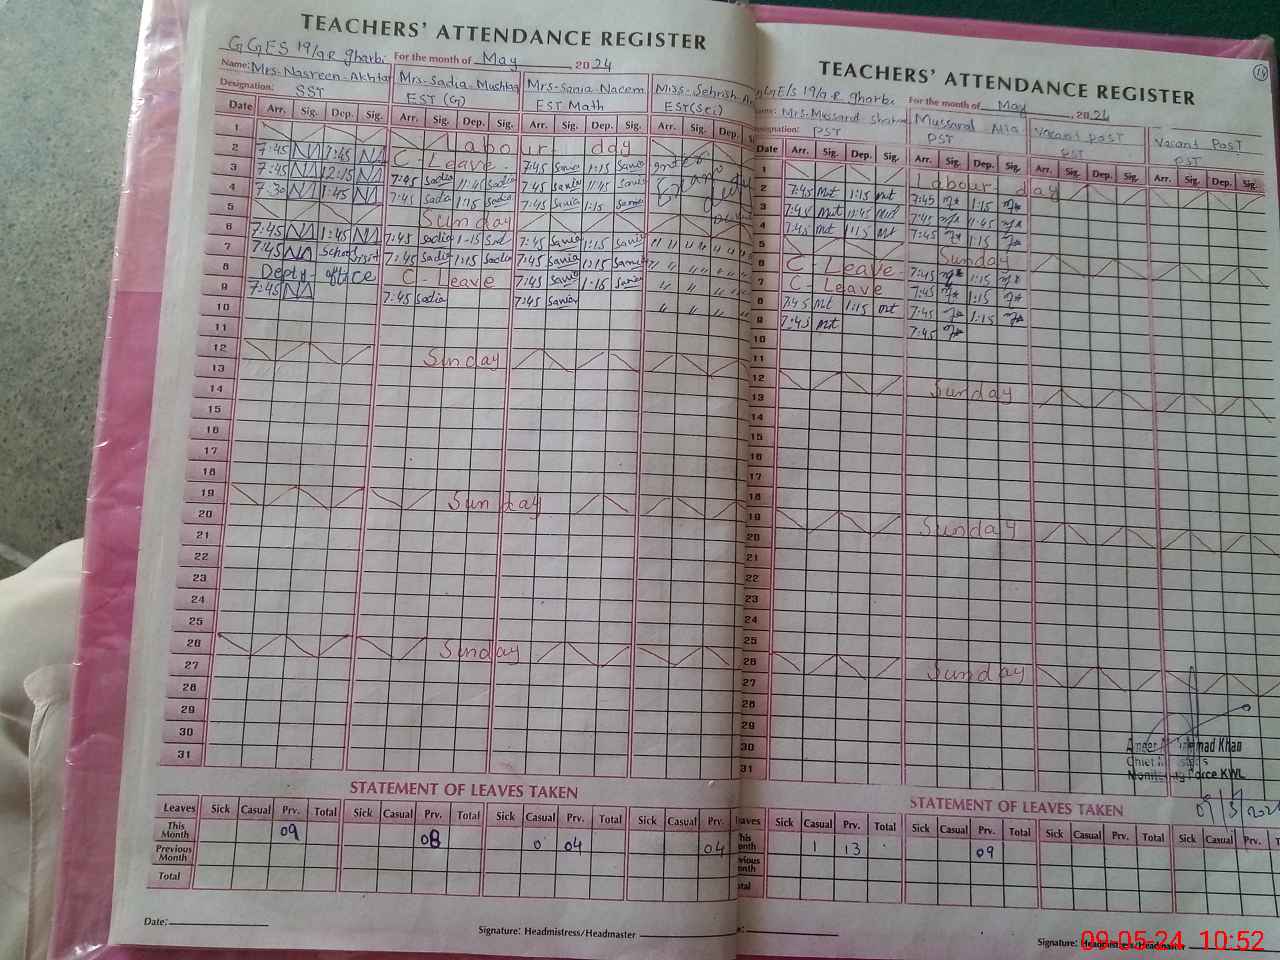 TEACHERS' ATTENDANCE REGISTER
GGES 19/9R gharbi For the month of May 2024
Name: Mrs-Nasreen-Akhtar Mrs-Sadia-Mushtaq Mrs-Sania Naeem Miss-Sehrish
Designation: SST EST (G) EST Math EST(Sci)
Date Arr. Sig. Dep. Sig. Arr. Sig. Dep. Sig. Arr. Sig. Dep. Sig. Arr. Sig. Dep.
1 Labour day
2 7:45 7:45 C-Leave 7:45 Sania 1:15 Sania
3 7:45 12:15 7:45 Sadia 11:45 Sadia 7:45 Sania 11:45 Sania
4 7:30 1:45 7:45 Sadia 1:15 Sadia 7:45 Sania 1:15 Sania
5 Sunday
6 7:45 1:45 7:45 Sadia 1-15 Sad 7:45 Sania 1:15 Sania " " " " " "
7 7:45 School visit 7:45 Sadia 1:15 Sadia 7:45 Sania 1:15 Sania " " " " " "
8 Deptt-office C-Leave 7:45 Sania 1:15 Sania " " " "
9 7:45 7:45 Sadia 7:45 Sania " " " "
10
11
12 Sunday
13
14
15
16
17
18
19 Sunday
20
21
22
23
24
25
26 Sunday
27
28
29
30
31
STATEMENT OF LEAVES TAKEN
Leaves Sick Casual Prv. Total Sick Casual Prv. Total Sick Casual Prv. Total Sick Casual Prv.
This Month 09 08 0 04 04
Previous Month
Total
Date:
Signature: Headmistress/Headmaster
TEACHERS' ATTENDANCE REGISTER
GGE/S 19/9R gharbi For the month of May, 2024
Mrs-Mussarat Mussarat Vacant post Vacant Post
Designation: PST PST PST PST
Date Arr. Sig. Dep. Sig. Arr. Sig. Dep. Sig. Arr. Sig. Dep. Sig. Arr. Sig. Dep. Sig.
1 Labour day
2 7:45 Mst 1:15 Mst 7:45 1:15
3 7:45 Mst 11:45 Mst 7:45 11:45
4 7:45 Mst 1:15 Mst 7:45 1:15
5 Sunday
6 C-Leave 7:45 1:15
7 C-Leave 7:45 1:15
8 7:45 Mst 1:15 Mst 7:45 1:15
9 7:45 Mst 7:45
10
11
12 Sunday
13
14
15
16
17
18
19 Sunday
20
21
22
23
24
25
26 Sunday
27
28
29
30
31
Khan
Chief
Monitoring Force KWL
STATEMENT OF LEAVES TAKEN
Leaves Sick Casual Prv. Total Sick Casual Prv. Total Sick Casual Prv. Total Sick Casual Prv.
This Month 1 13 09
Previous Month
Total
Signature: Headmistress/Headmaster
09-05-24 10:52